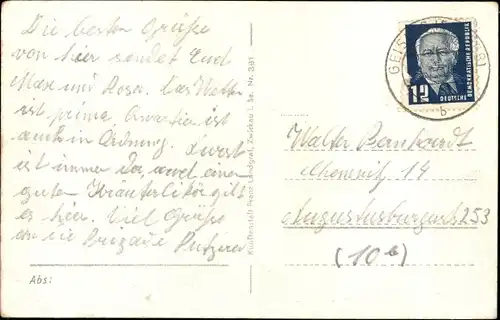 Die besten Grüße
von hier sendet Euch
Max und Rosa. Das Wetter
ist prima Quartier ist
auch in Ordnung. Durst
ist immer da, und einen
guten Kräuterlikör gibt
es hier. Viel Grüße
an die Brigade
Abs:
Kunstanstalt Franz Landgraf, Zwickau i. Sa. Nr. 391
DEUTSCHE
DEMOKRATISCHE REPUBLIK
12
b
Walter Bernhardt
Chemnitz 14
Augustusburgerst 253
(10b)